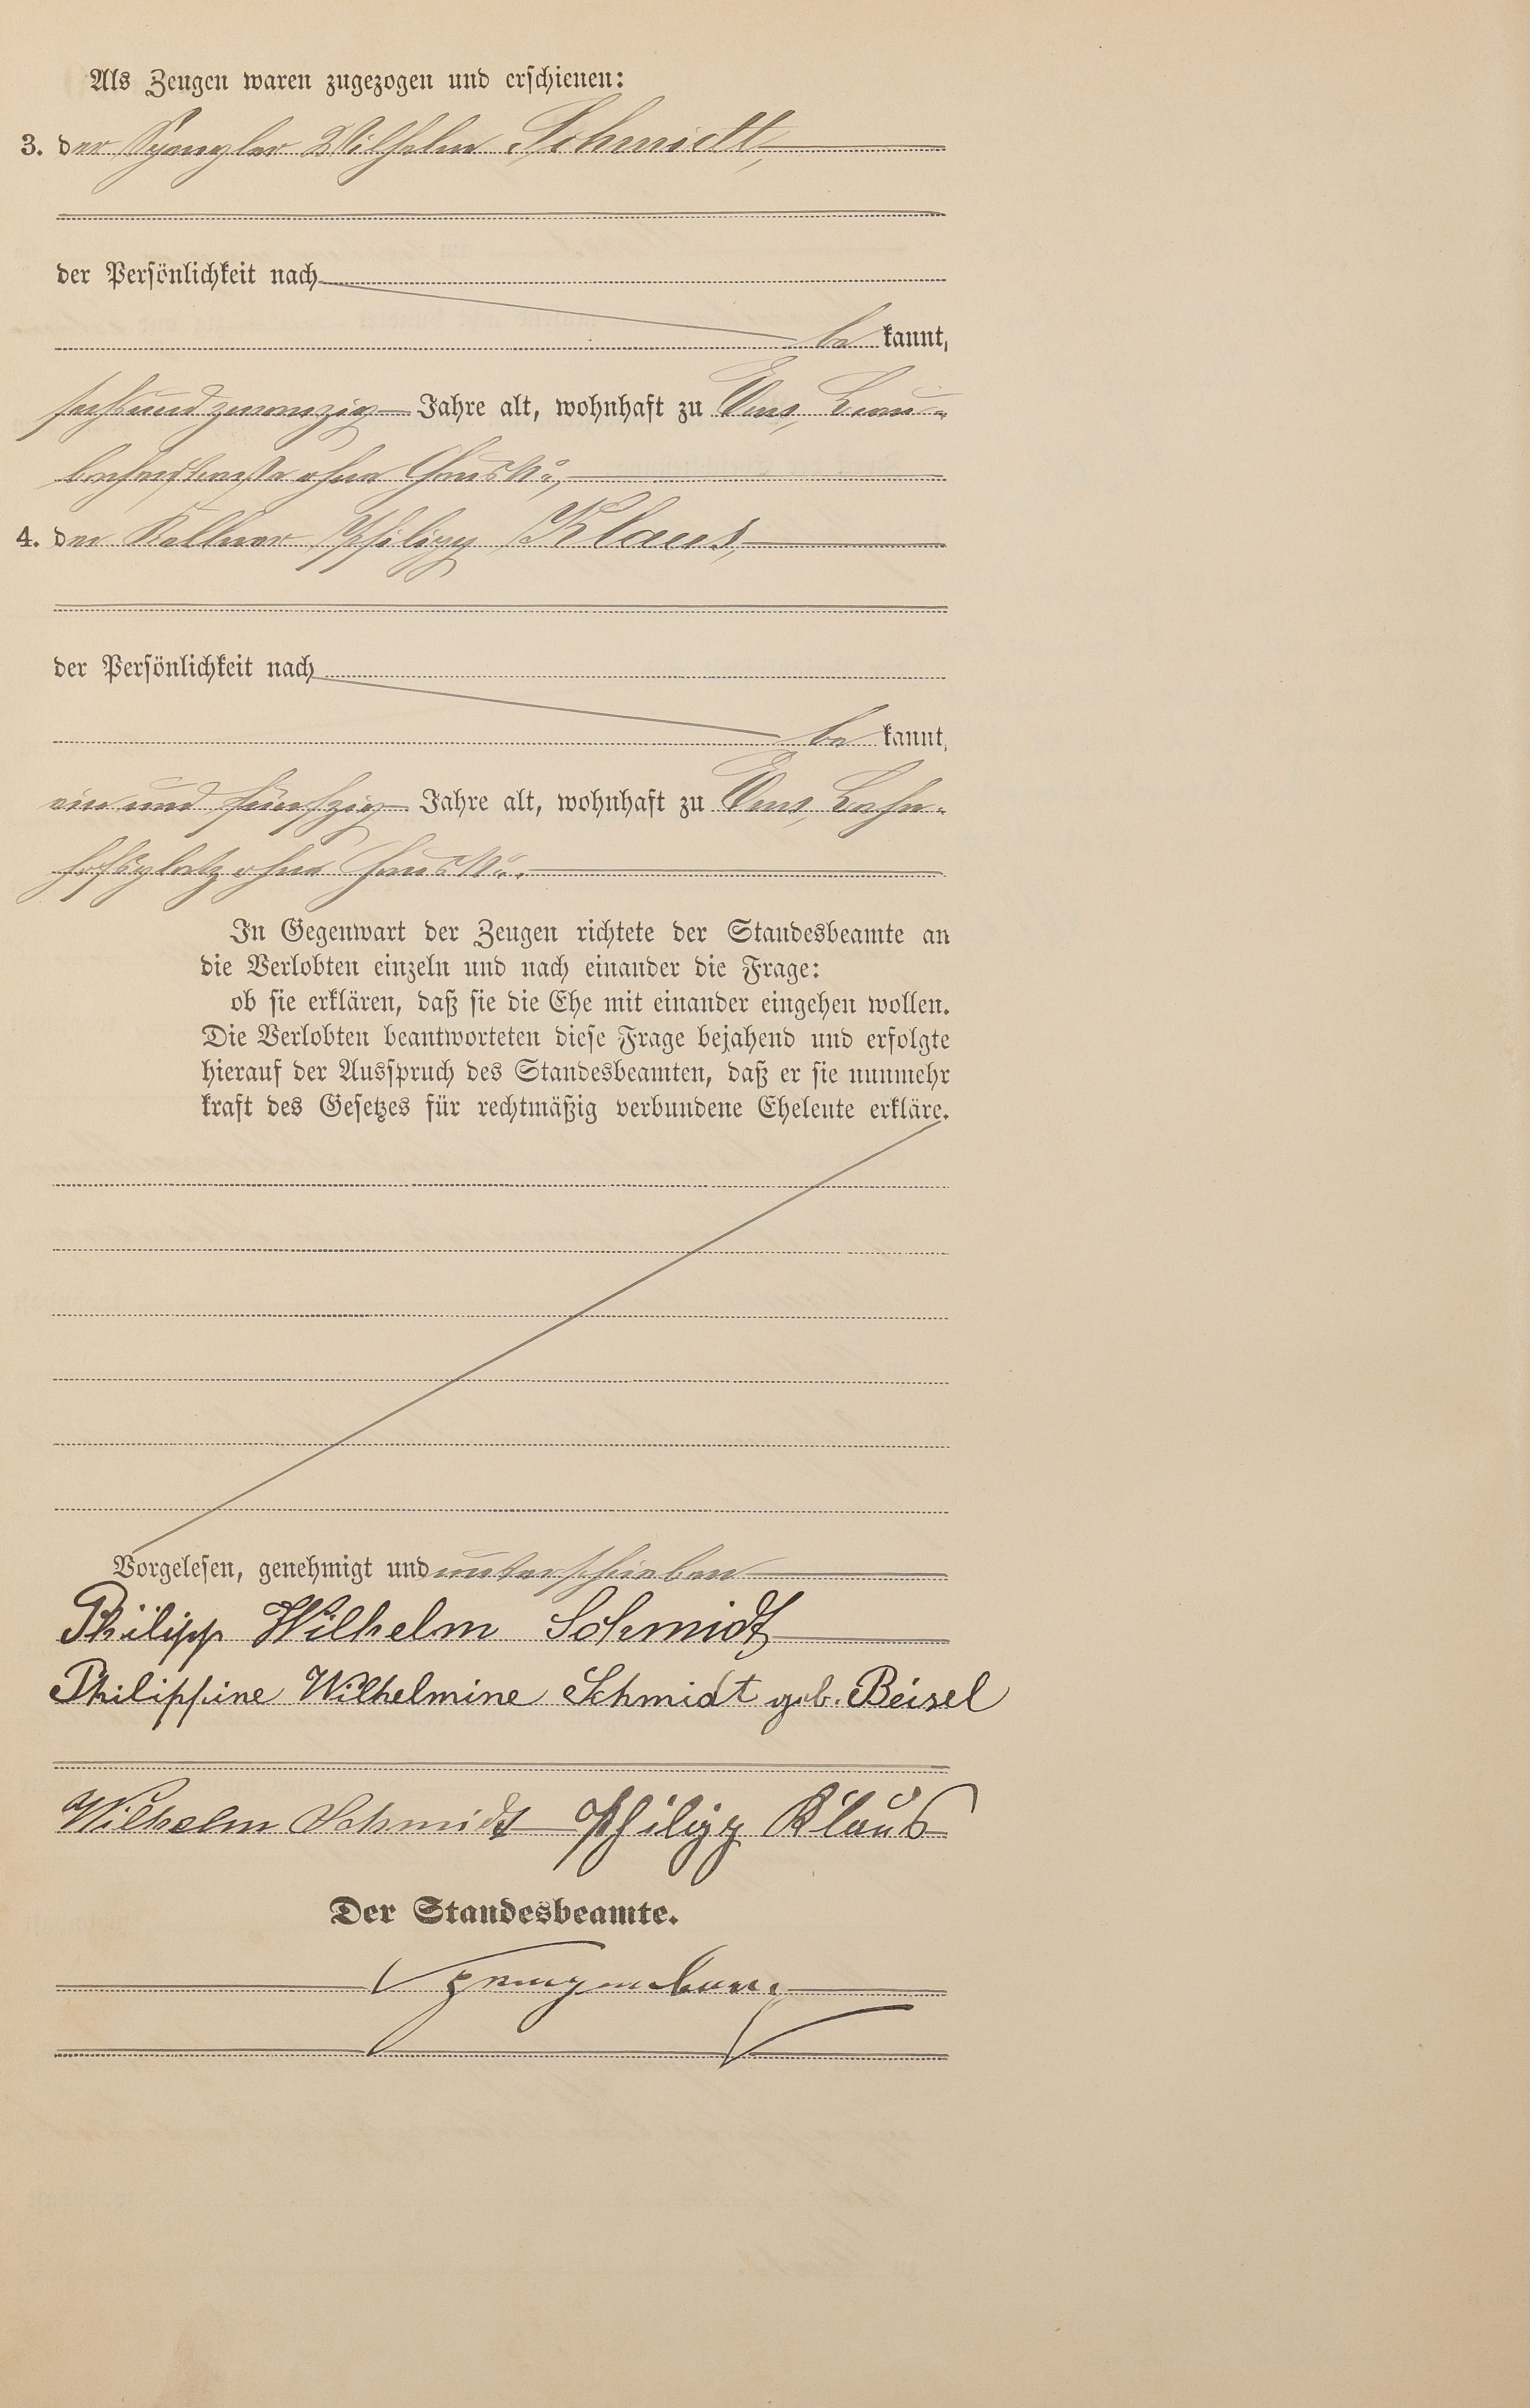 Als Zeugen waren zugezogen und erschienen:
3. der Spengler Wilhelm Schmidt,
der Persönlichkeit nach
be kannt,
sechsundzwanzig Jahre alt, wohnhaft zu Ems, Brau-
bacherstraße ohne Haus No,
4. der Kellner Philipp Klaus,
der Persönlichkeit nach
be kannt,
ein und fünfzig Jahre alt, wohnhaft zu Ems, Bahn-
hofsplatz ohne Haus No.
In Gegenwart der Zeugen richtete der Standesbeamte an
die Verlobten einzeln und nach einander die Frage:
ob sie erklären, daß sie die Ehe mit einander eingehen wollen.
Die Verlobten beantworteten diese Frage bejahend und erfolgte
hierauf der Ausspruch des Standesbeamten, daß er sie nunmehr
kraft des Gesetzes für rechtmäßig verbundene Eheleute erkläre.
Vorgelesen, genehmigt und unterschrieben
Philipp Wilhelm Schmidt
Philippine Wilhelmine Schmidt geb. Beisel
Wilhelm Schmidt Philipp Klaus
Der Standesbeamte.